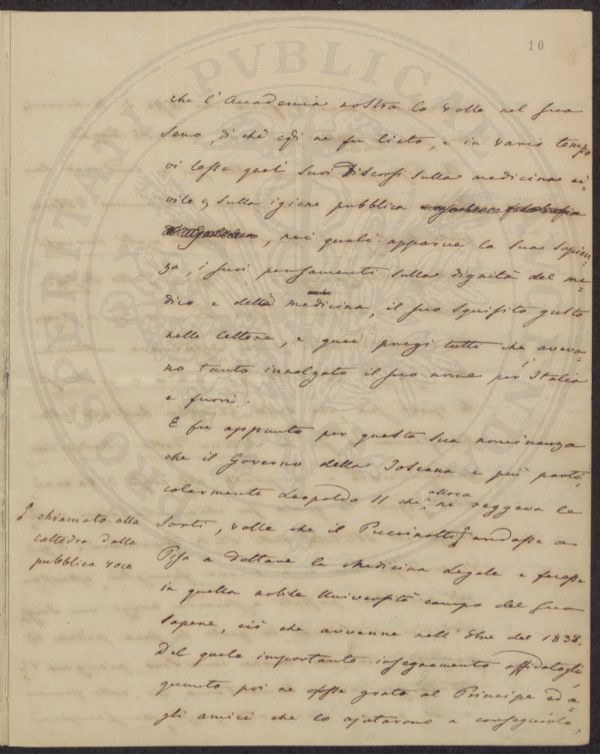 10
che l'Accademia nostra lo volle nel suo
seno, di che egli ne fu lieto, e in vario tempo
vi lesse quei suoi Discorsi sulla medicina ci-
vile e sulla igiene pubblica
, nei quali apparve la sua sapien-
za, i suoi pensamenti sulla dignità del me-
dico e della medicina, il suo squisito gusto
nelle lettere, e quei pregi tutti che aveva-
no tanto innalzato il suo nome per l'Italia
e fuori.
E fu appunto per questa sua rinomanza
che il Governo della Toscana e più parti-
colarmente Leopoldo II che allora ne reggeva le
sorti, volle che il Puccinotti andasse a
chiamato alla
cattedra dalla
pubblica voce
Pisa a dettare la Medicina Legale e facesse
in quella nobile Università campo del suo
sapere, ciò che avvenne nell' del 1838.
Del quale importante insegnamento affidatogli
quanto poi ne fosse grato al Principe ed a-
gli amici che lo ajutarono a conseguirlo,
PROSPERITATI PUBLICAE